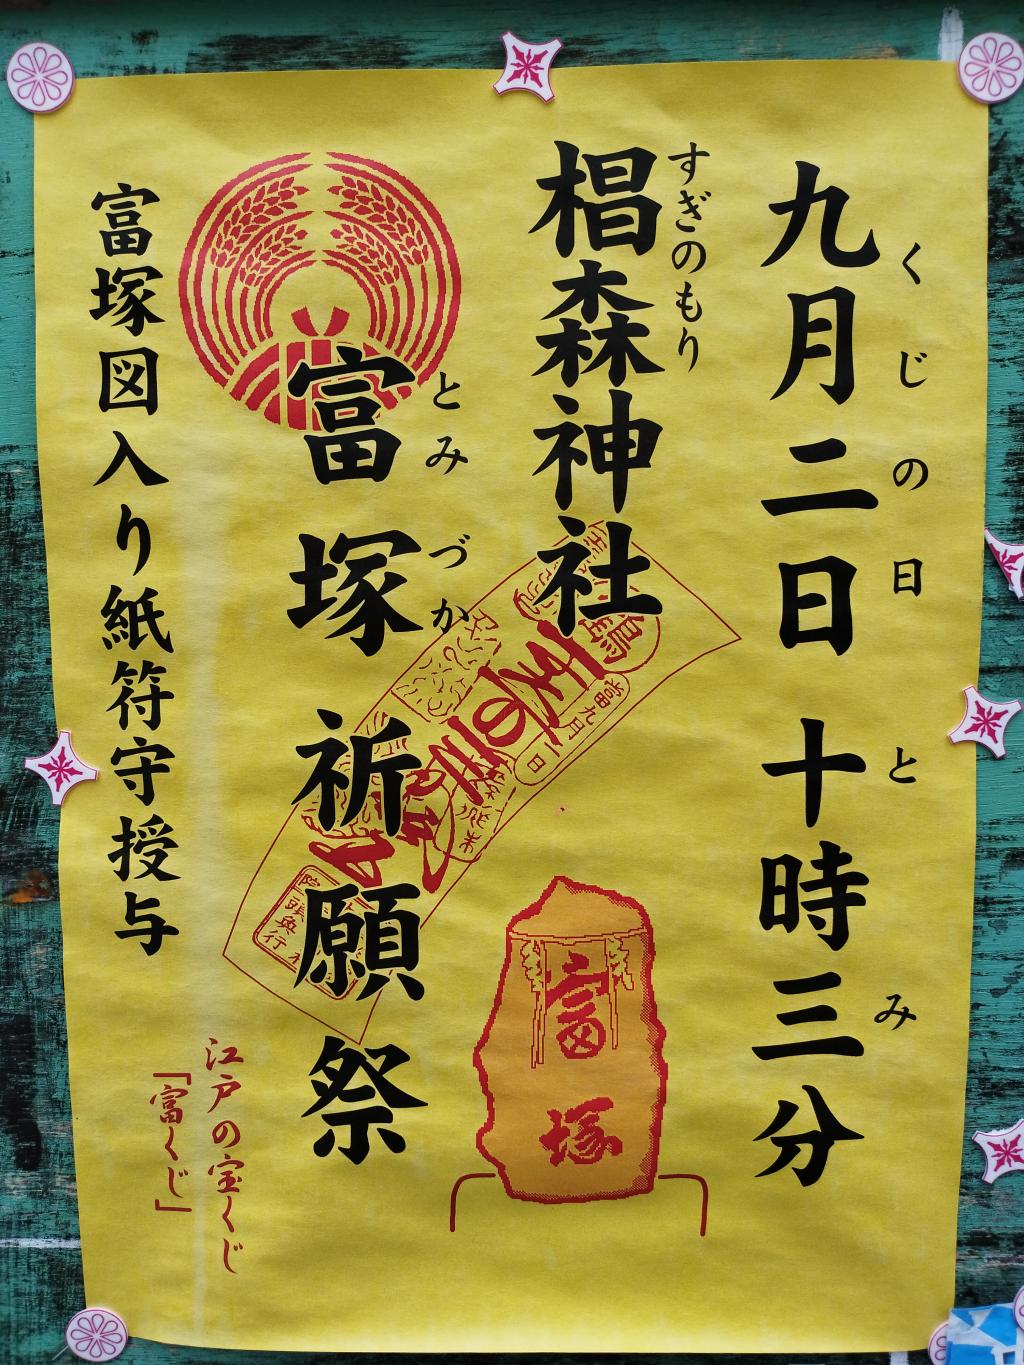 九月二日 十時三分
くじの日 とみ
椙森神社
すぎのもり
富塚祈願祭
とみづか
富塚図入り紙符守授与
江戸の宝くじ
「富くじ」
富塚